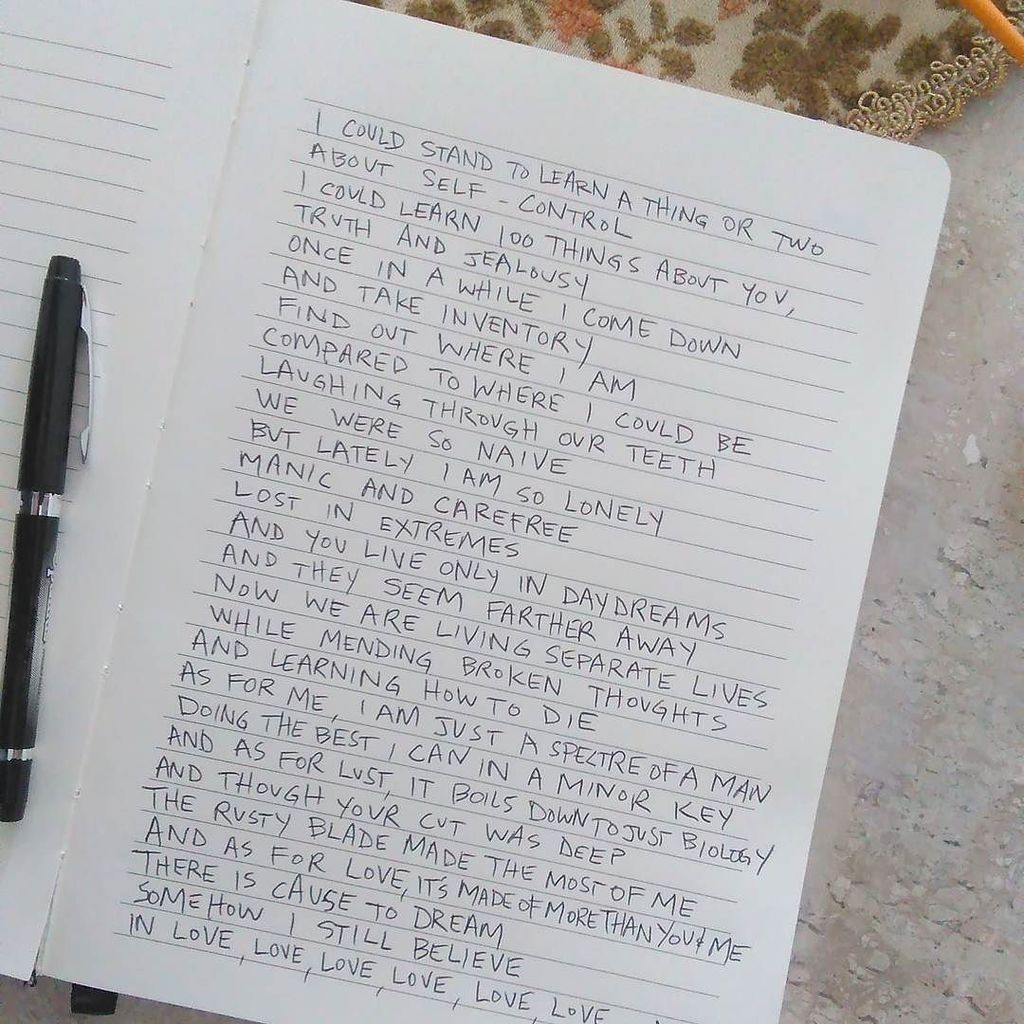 I COULD STAND TO LEARN A THING OR TWO
ABOUT SELF-CONTROL
I COULD LEARN 100 THINGS ABOUT YOU,
TRUTH AND JEALOUSY
ONCE IN A WHILE I COME DOWN
AND TAKE INVENTORY
FIND OUT WHERE I AM
COMPARED TO WHERE I COULD BE
LAUGHING THROUGH OUR TEETH
WE WERE SO NAIVE
BUT LATELY I AM SO LONELY
MANIC AND CAREFREE
LOST IN EXTREMES
AND YOU LIVE ONLY IN DAYDREAMS
AND THEY SEEM FARTHER AWAY
NOW WE ARE LIVING SEPARATE LIVES
WHILE MENDING BROKEN THOUGHTS
AND LEARNING HOW TO DIE
AS FOR ME, I AM JUST A SPECTRE OF A MAN
DOING THE BEST I CAN IN A MINOR KEY
AND AS FOR LUST, IT BOILS DOWN TO JUST BIOLOGY
AND THOUGH YOUR CUT WAS DEEP
THE RUSTY BLADE MADE THE MOST OF ME
AND AS FOR LOVE, IT'S MADE OF MORE THAN YOU & ME
THERE IS CAUSE TO DREAM
SOMEHOW I STILL BELIEVE
IN LOVE, LOVE, LOVE, LOVE, LOVE, LOVE